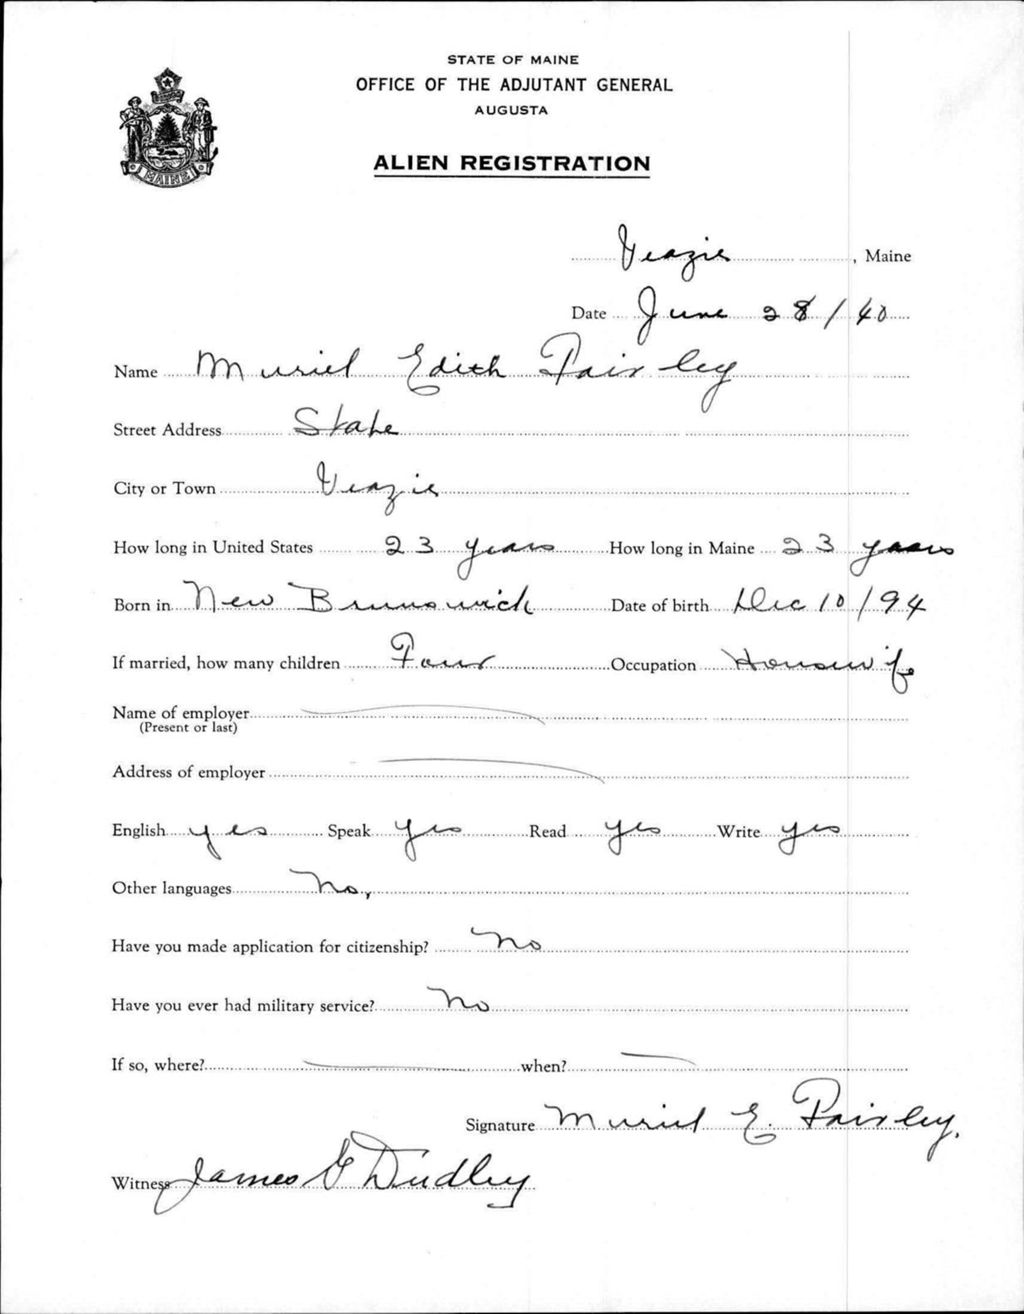 STATE OF MAINE
OFFICE OF THE ADJUTANT GENERAL
AUGUSTA
ALIEN REGISTRATION
MAINE
Veazie, Maine
Date June 28/40
Name Muriel Edith Pairley
Street Address State
City or Town Veazie
How long in United States 23 years How long in Maine 23 years
Born in New Brunswick Date of birth Dec 10/94
If married, how many children Four Occupation Housewife
Name of employer
(Present or last)
Address of employer
English yes Speak yes Read yes Write yes
Other languages No,
Have you made application for citizenship? No
Have you ever had military service? No
If so, where? when?
Signature Muriel E. Pairley.
Witness James E Dudley